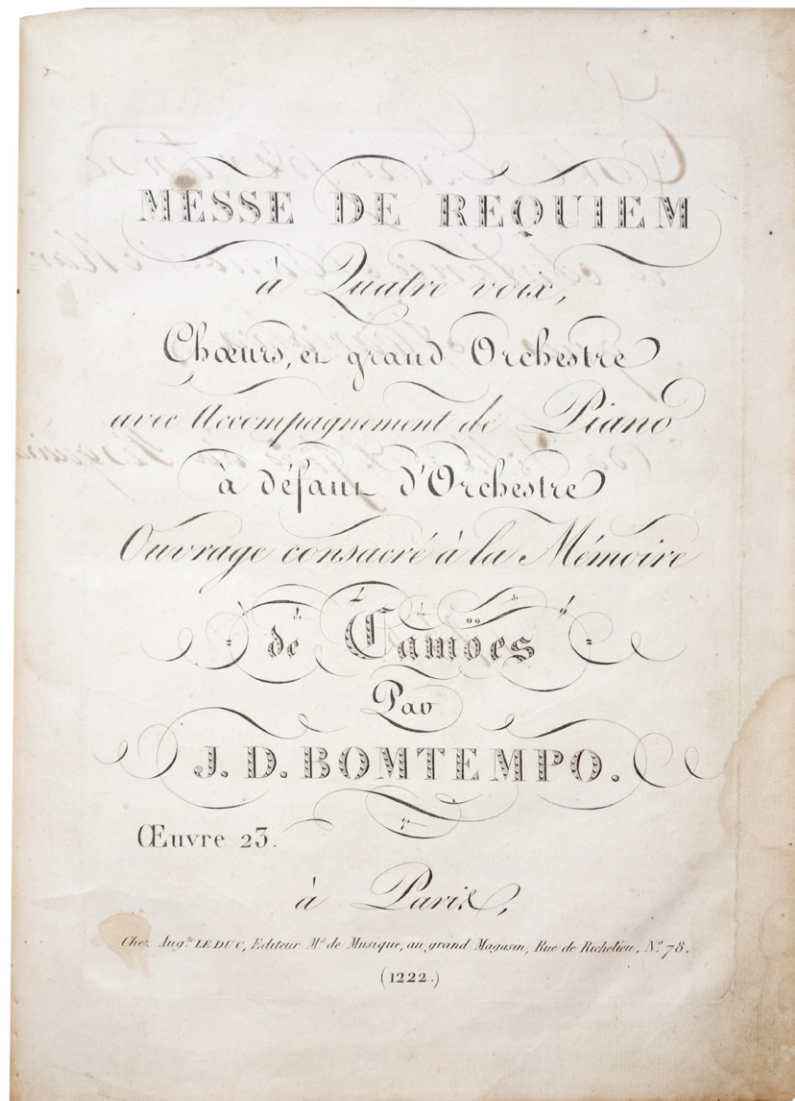 MESSE DE REQUIEM
à Quatre voix,
Chœurs, et grand Orchestre
avec Accompagnement de Piano
à défaut d'Orchestre
Ouvrage consacré à la Mémoire
de Camöes
Par
J. D. BOMTEMPO.
Œuvre 23.
à Paris,
Chez Aug.te LE DUC, Editeur M.d de Musique, au grand Magasin, Rue de Richelieu, N.o 78.
(1222.)